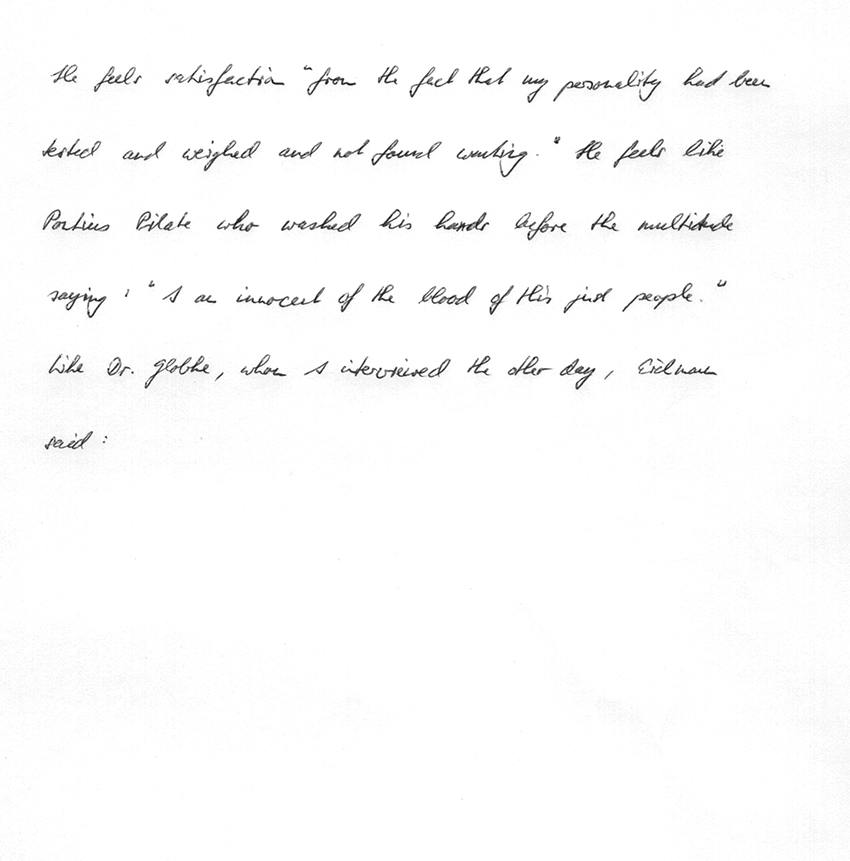 He feels satisfaction "from the fact that my personality had been
tested and weighed and not found wanting." He feels like
Pontius Pilate who washed his hands before the multitude
saying: "I am innocent of the blood of this just people."
Like Dr. Globke, whom I interviewed the other day, Eichmann
said: